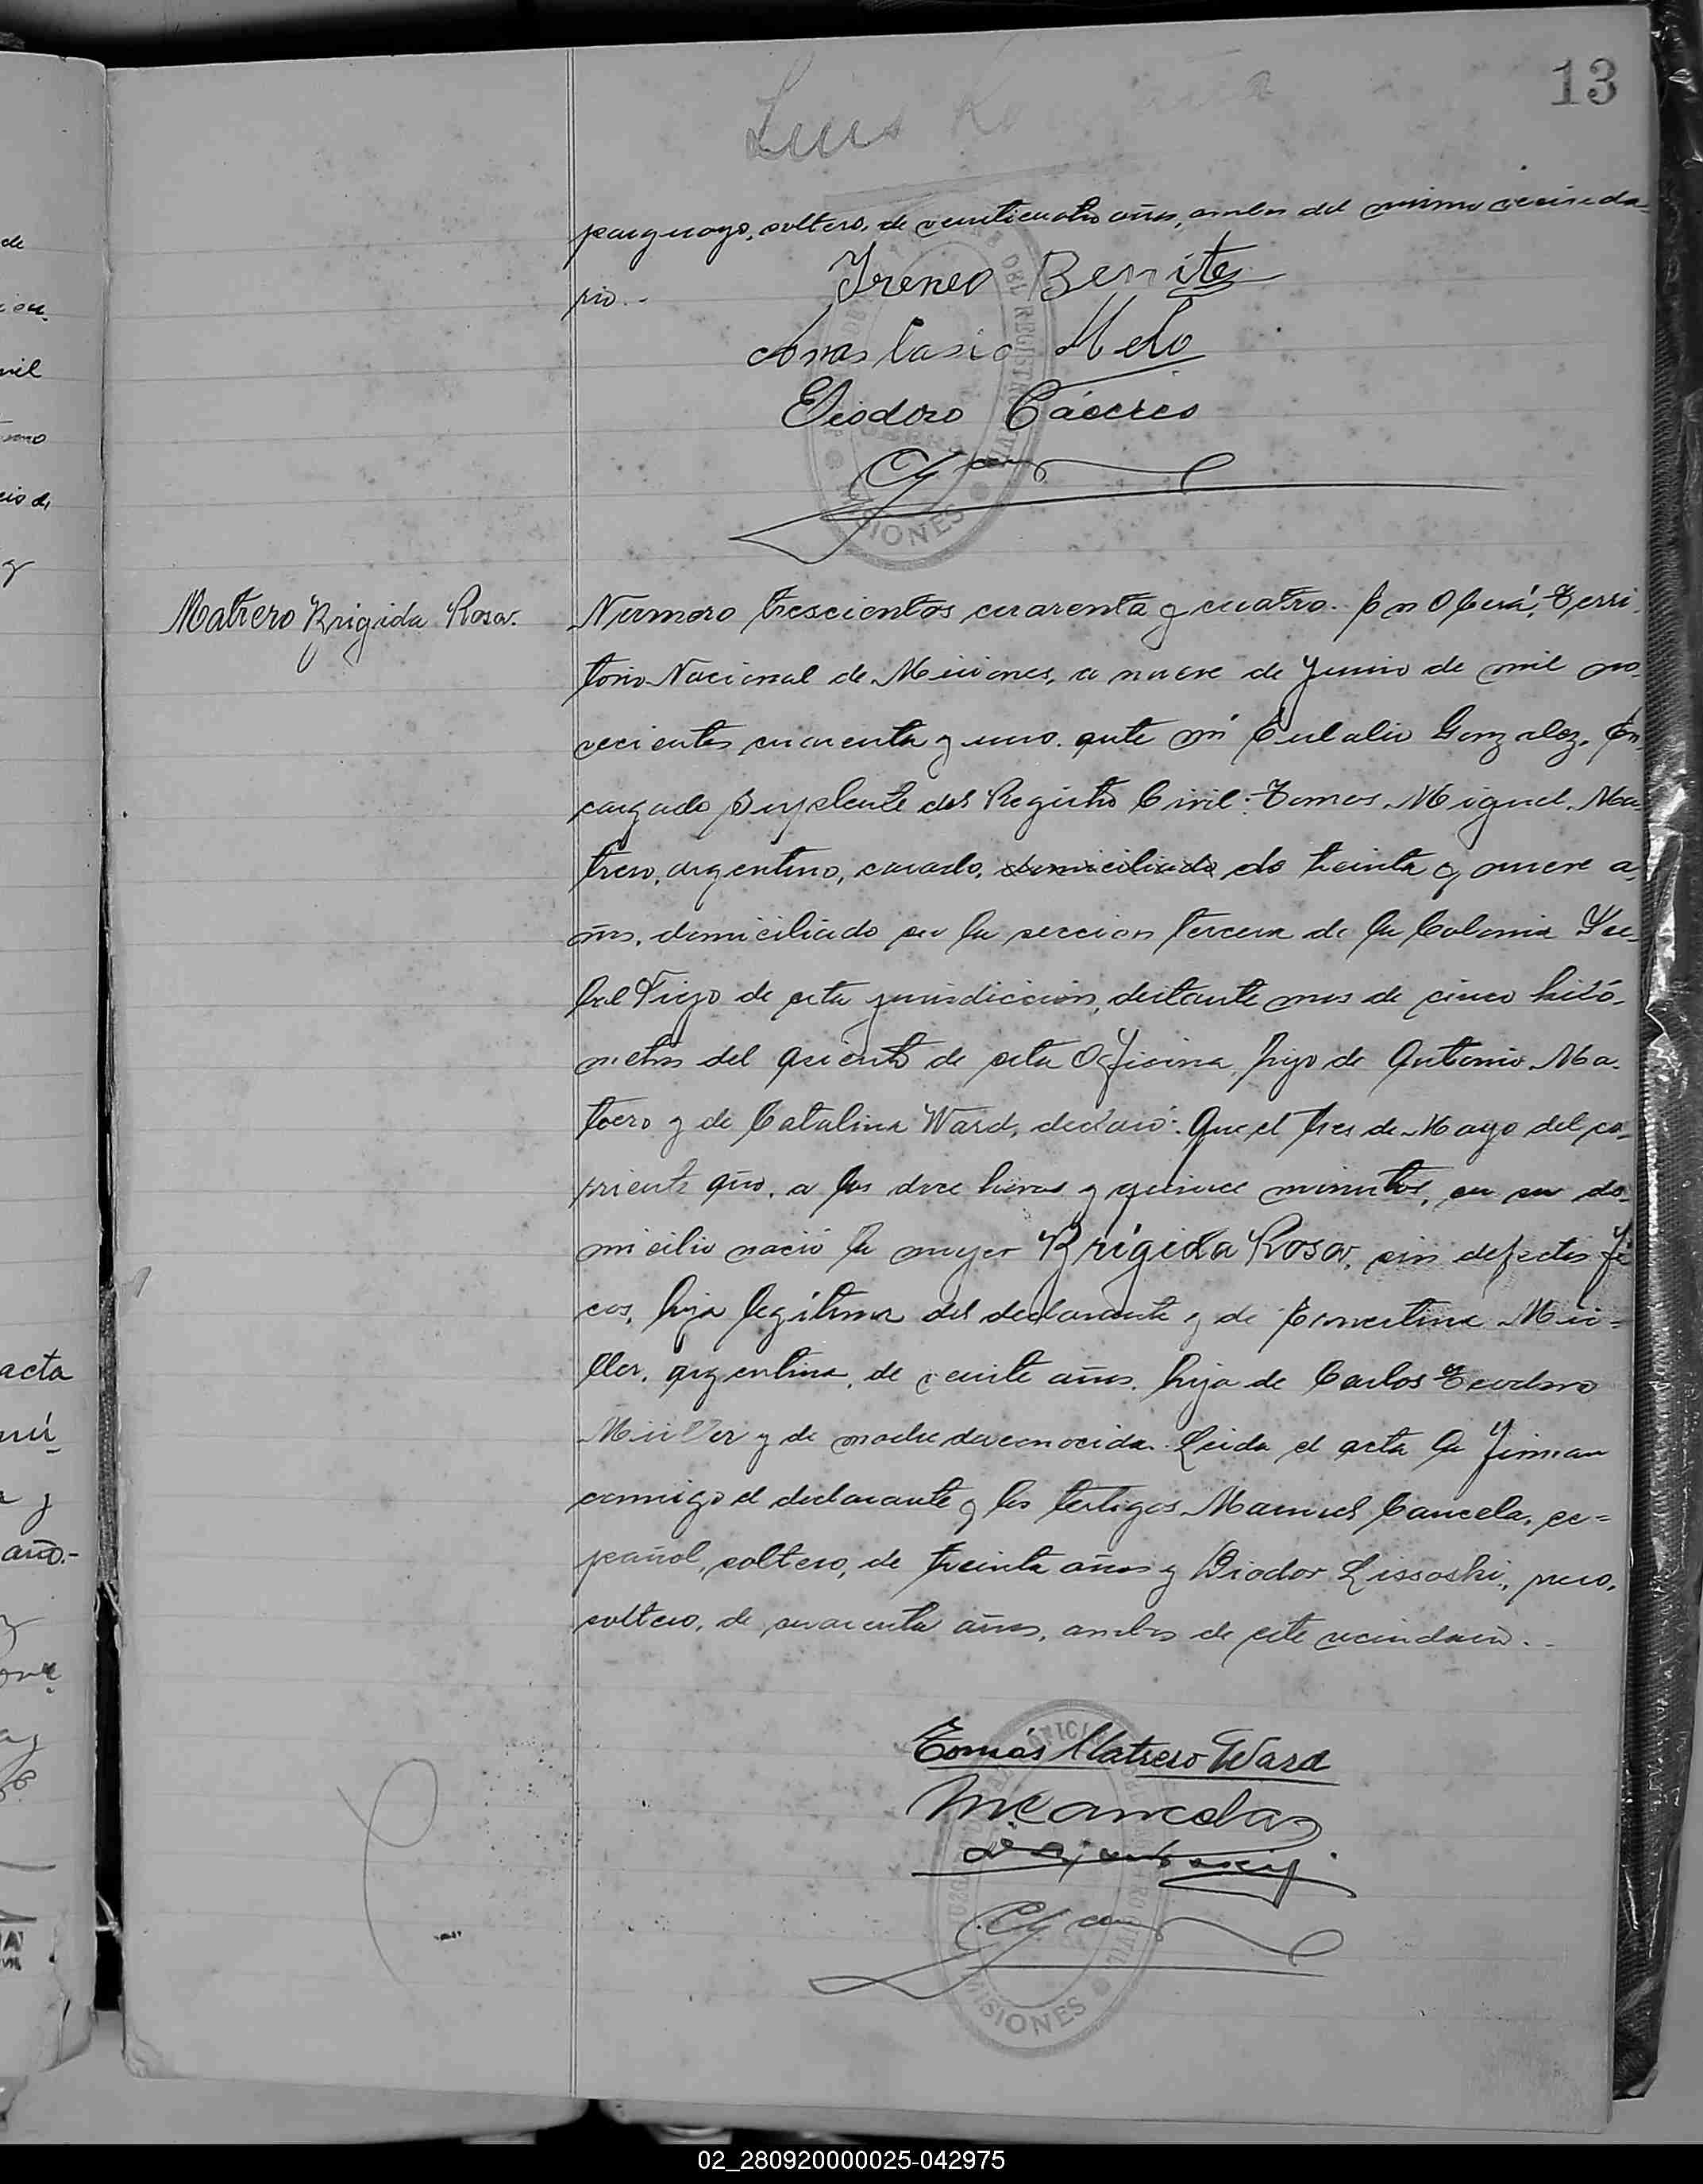 13
Luis
paraguayo, soltero, de veinticuatro años, ambos del mismo vecinda-
rio.-
Ireneo Benites
Anastasio Melo
Eliodoro Cáceres
MISIONES
Matrero Brigida Rosa.
Numero trescientos cuarenta y cuatro. En Oberá, Terri-
torio Nacional de Misiones, a nueve de Junio de mil no-
vecientos cuarenta y uno. ante mí Eulalio Gonzalez, En-
cargado Suplente del Registro Civil: Tomas Miguel Ma-
trero, argentino, casado, domiciliado de treinta y nueve a-
ños, domiciliado en la seccion tercera de la Colonia Yer-
bal Viejo de esta jurisdiccion, distante mas de cinco kiló-
metros del asiento de esta Oficina, hijo de Antonio Ma-
trero y de Catalina Ward, declaró: Que el tres de Mayo del co-
rriente año, a las doce horas y quince minutos, en su do-
micilio nació la mujer Brígida Rosa, sin defectos fí
cos, hija legítima del declarante y de Ernestina Mü-
ller, argentina, de veinte años, hija de Carlos Teodoro
Müller y de madre desconocida. Leida el acta la firman
conmigo el declarante y los testigos Manuel Cancela, es=
pañol, soltero, de treinta años y Diodor Lissoski, ruso,
soltero, de cuarenta años, ambos de este vecindario..
Tomás Matrero Ward
MCancela
MISIONES
de
mil
cio de
y
acta
nú-
a y
año.-
02_280920000025-042975